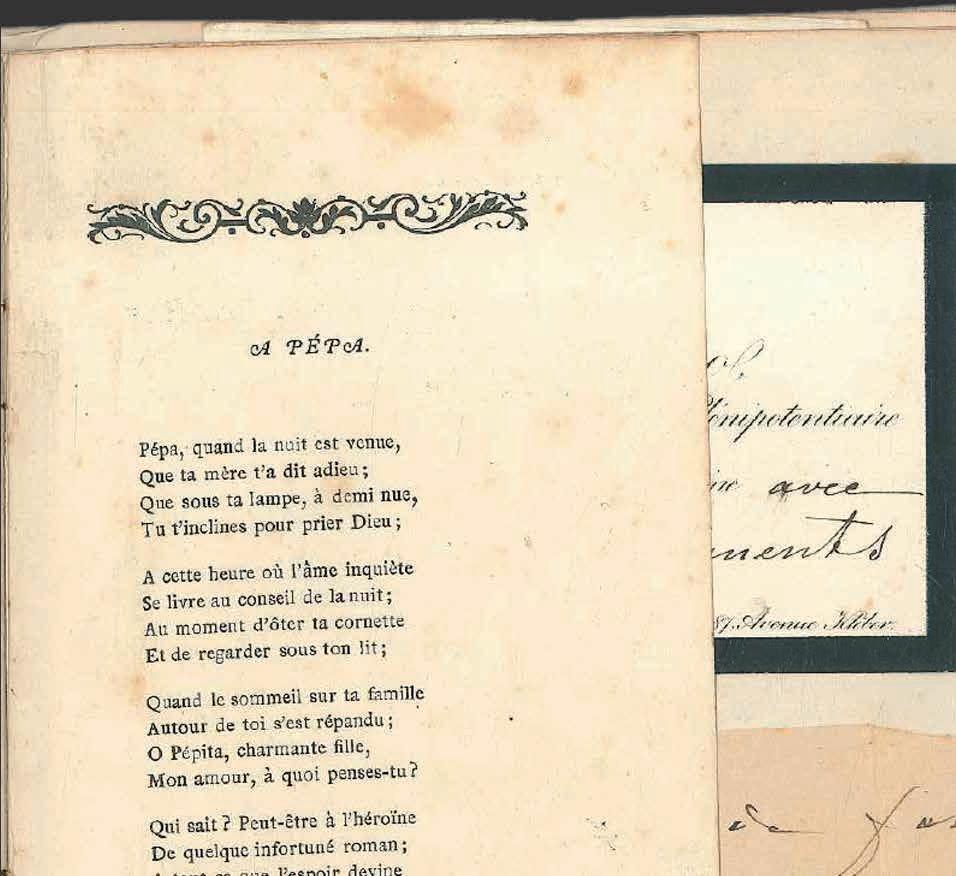 A PÉPA.
Pépa, quand la nuit est venue,
Que ta mère t'a dit adieu ;
Que sous ta lampe, à demi nue,
Tu t'inclines pour prier Dieu ;
A cette heure où l'âme inquiète
Se livre au conseil de la nuit ;
Au moment d'ôter ta cornette
Et de regarder sous ton lit ;
Quand le sommeil sur ta famille
Autour de toi s'est répandu ;
O Pépita, charmante fille,
Mon amour, à quoi penses-tu ?
Qui sait ? Peut-être à l'héroïne
De quelque infortuné roman ;
que l'espoir devine
avec
87, Avenue Kléber.
de